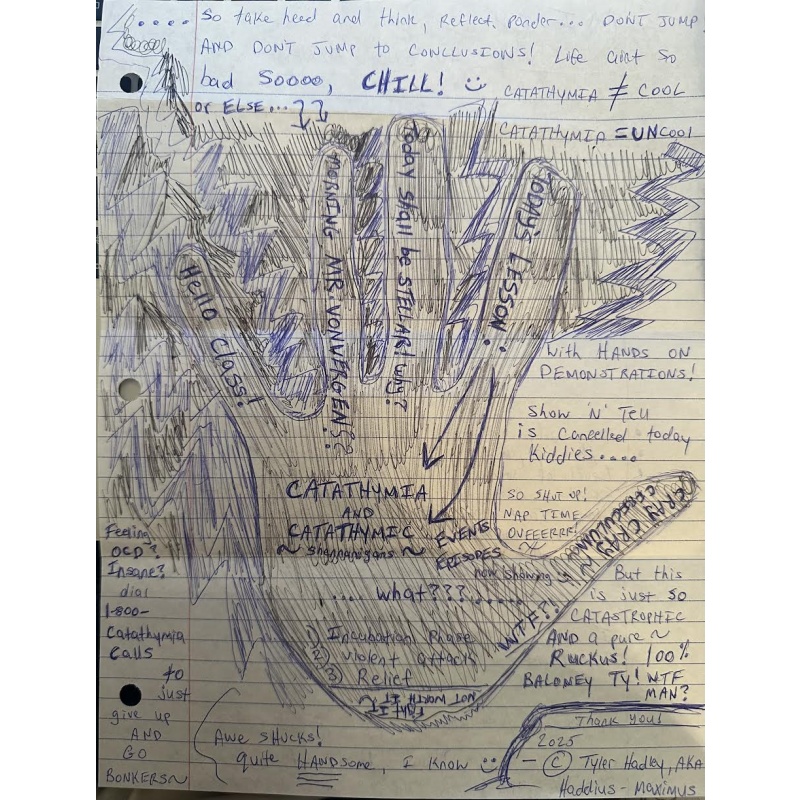 .... So take heed and think, Reflect, Ponder... DON'T JUMP!
AND DON'T JUMP to CONCLUSIONS! Life aint so
bad Soooo, CHILL! :)
or ELSE...
CATATHYMIA ≠ COOL
CATATHYMIA = UNCOOL
Hello Class!
MORNING MR. VONVERGENS??
Today shall be STELLAR! why?
TODAY'S LESSON:
With HANDS ON
DEMONSTRATIONS!
Show 'N' Tell
is cancelled today
Kiddies....
SO SHUT UP!
NAP TIME
OVEEERRR!
CATATHYMIA
AND
CATATHYMIC
~ Shannanigans ~
EVENTS
EPISODES
CRAY CRAY IN
now showing
.....what???......
WTF??
① Incubation Phase
② violent attack
③ Relief
FIGHT IT
NOT WORTH IT
But this
is just so
CATASTROPHIC
AND a pure ~
Ruckus! 100%
BALONEY TY! WTF
MAN?
Feeling
OCD??
Insane?
dial
1-800-
Catathymia
Calls
to
just
give up
AND
GO
BONKERS~
Awe SHUCKS!
quite HANDsome, I know :)
Thank You!
2025
– © Tyler Hadley, AKA
Haddius - Maximus